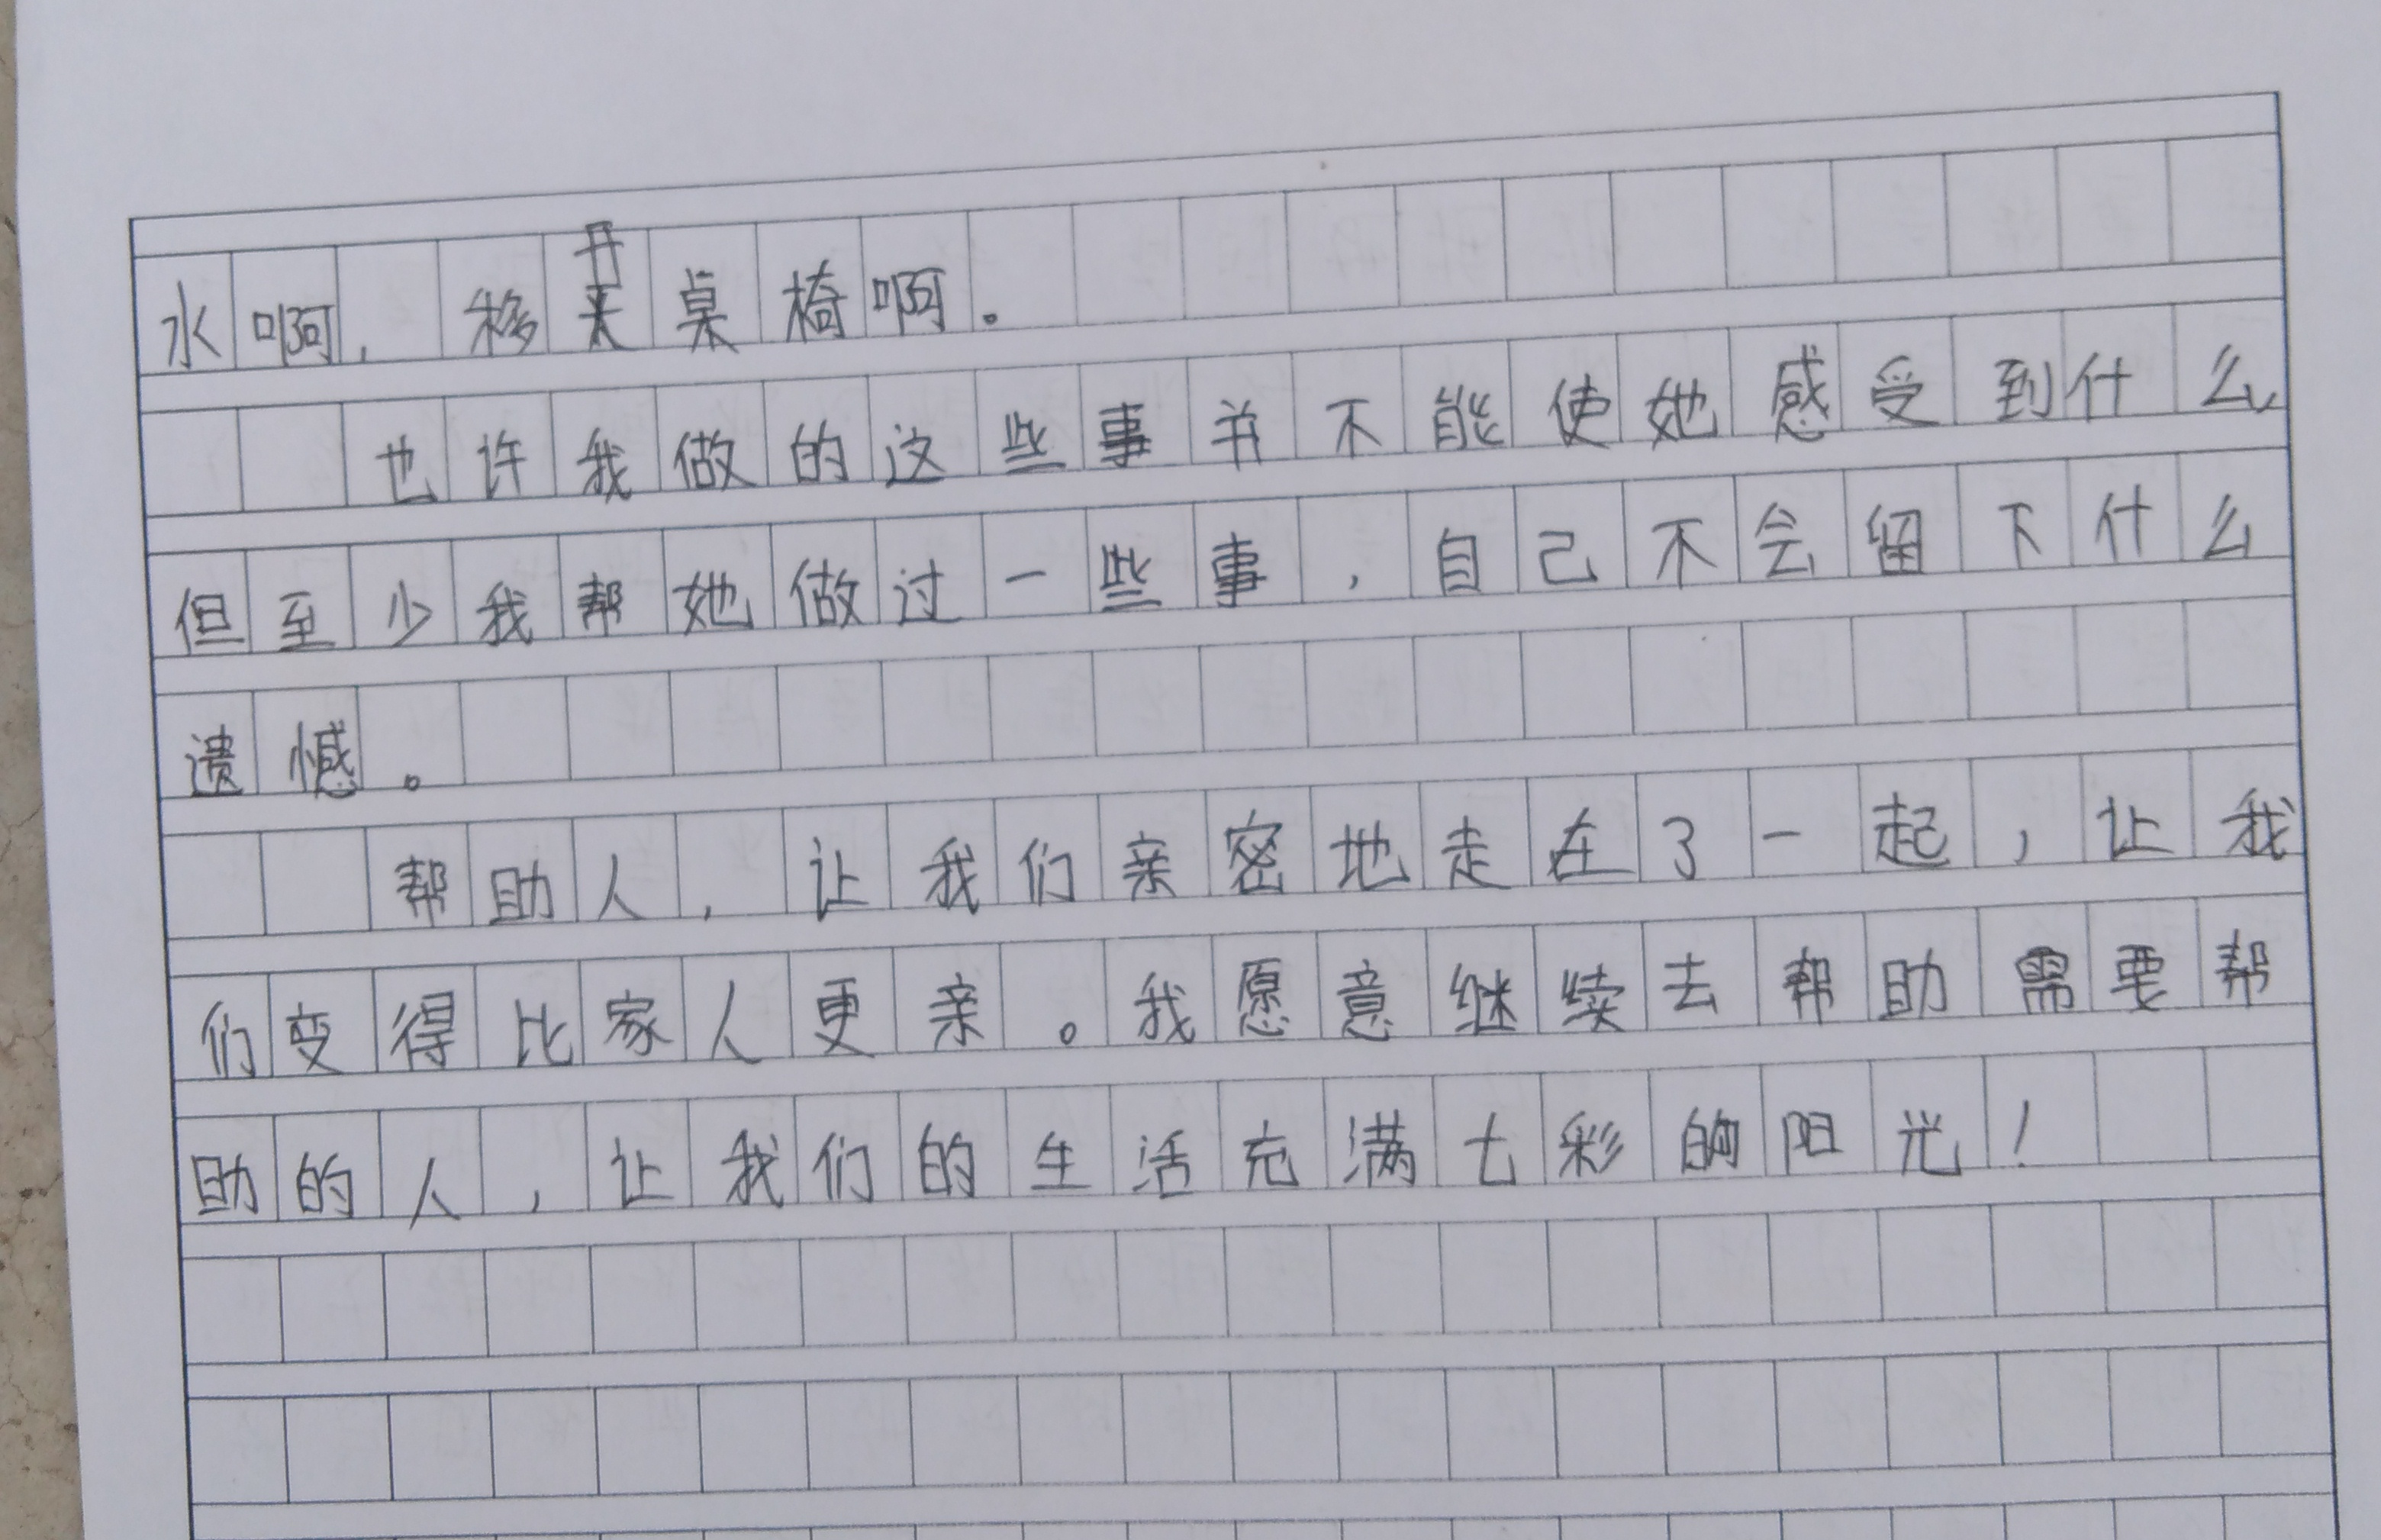 水啊，移开桌椅啊。
也许我做的这些事并不能使她感受到什么，
但至少我帮她做过一些事，自己不会留下什么
遗憾。
帮助人，让我们亲密地走在了一起，让我
们变得比家人更亲。我愿意继续去帮助需要帮
助的人，让我们的生活充满七彩的阳光！